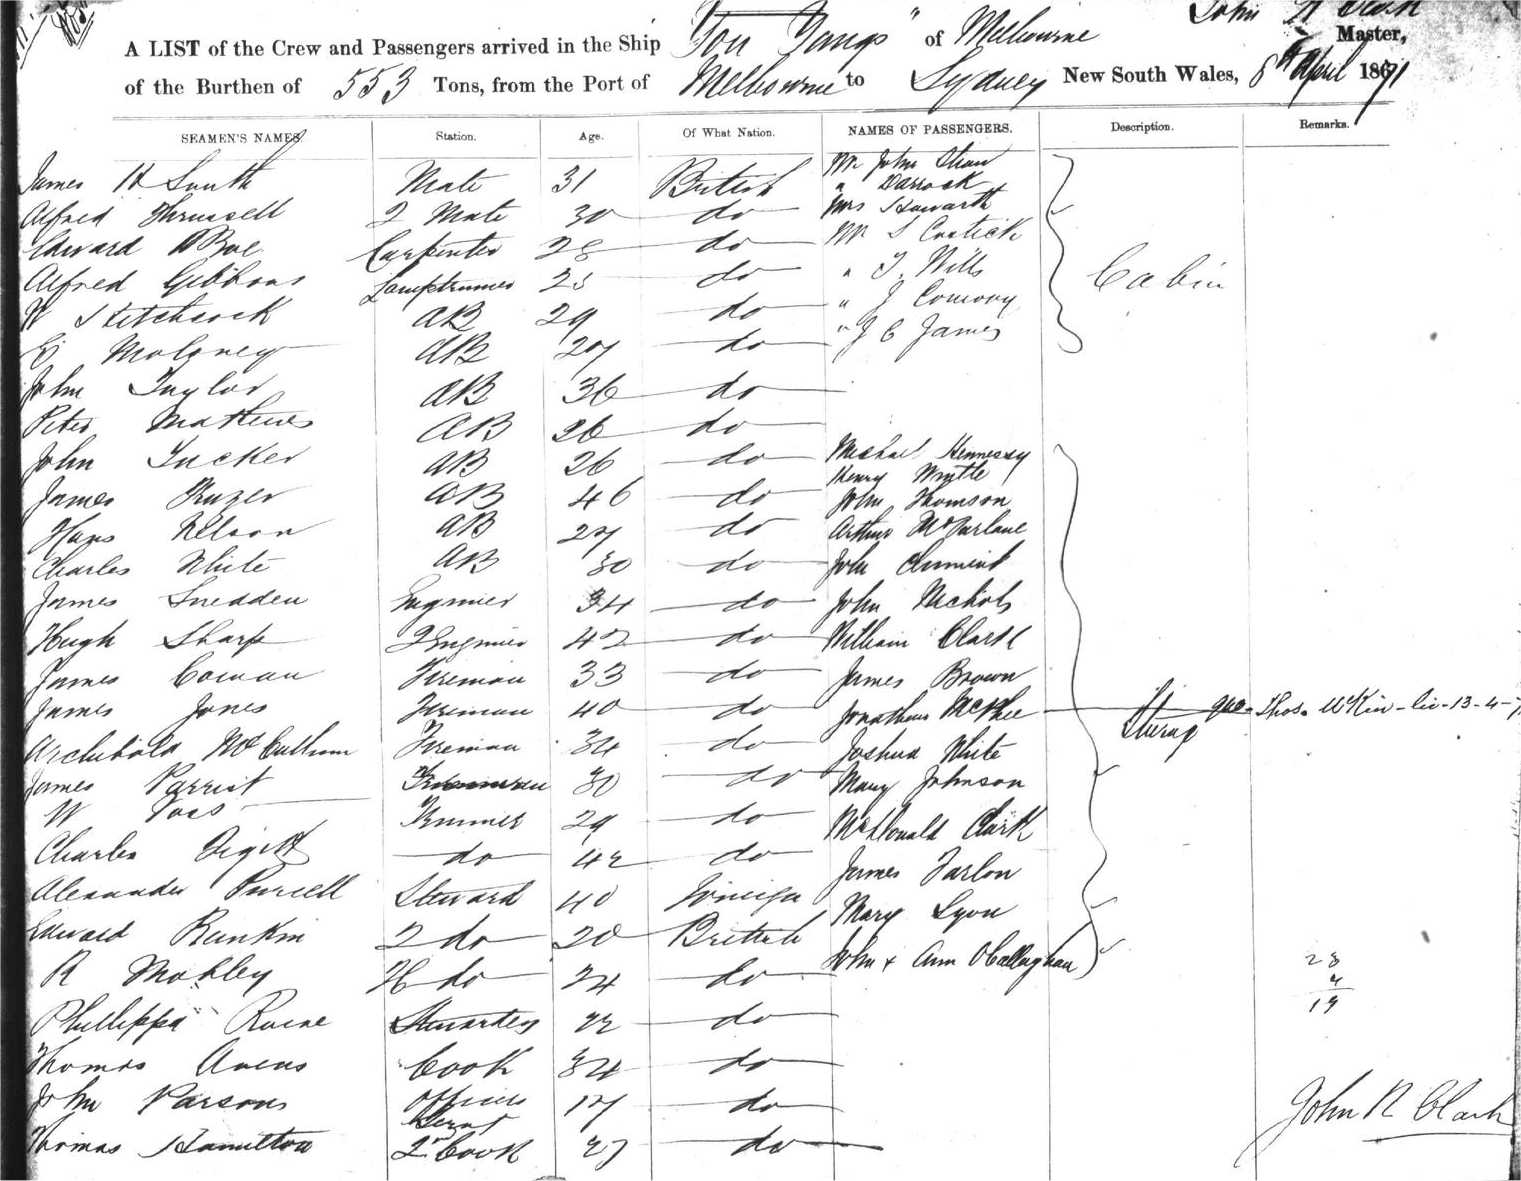 John R Clark
A LIST of the Crew and Passengers arrived in the Ship You Yangs " of Melbourne Master,
of the Burthen of 553 Tons, from the Port of Melbourne to Sydney New South Wales, 8th April 1871
SEAMEN'S NAMES. Station. Age. Of What Nation. NAMES OF PASSENGERS. Description. Remarks.
James H South Mate 31 British Mr John Shaw
" Darrock
Alfred Thrussell 2 Mate 30 do Mrs Howarth
Edward Carpenter 28 do Mr S
Alfred Gibbons Lamptrimmer 25 do " T. Wills Cabin
W Hitchcock AB 29 do " J Conway
Moloney AB 27 do " J C James
John Taylor AB 36 do
Peter Mathews AB 26 do
John Tucker AB 26 do Michael Hennessy
Henry
James AB 46 do John Thomson
Hans Nelson AB 27 do Arthur McFarlane
Charles White AB 30 do John
James Snedden Engineer 34 do John Nichols
Hugh Sharp 2 Engineer 42 do William Clark
James Cowan Fireman 33 do James Brown
James Jones Fireman 40 do Jonathan McPhee Thos. 13-4-71
Steerage
Archibald McCullum Fireman 34 do Joshua White
James Parrist 30 do Mary Johnson
W Voss Trimmer 29 do McDonald Clark
Charles do 42 do James Farlon
Alexander Purcell Steward 40 Foreign Mary Lyon
Edward Rankin 2 do 20 British John & Ann O'Callaghan
R Mobley do 24 do 23
4
19
Phillippa Stewardess 22 do
Thomas Avens Cook 34 do
John Parsons Officers Servt 17 do
John R Clark
Thomas Hamilton 2nd Cook 27 do